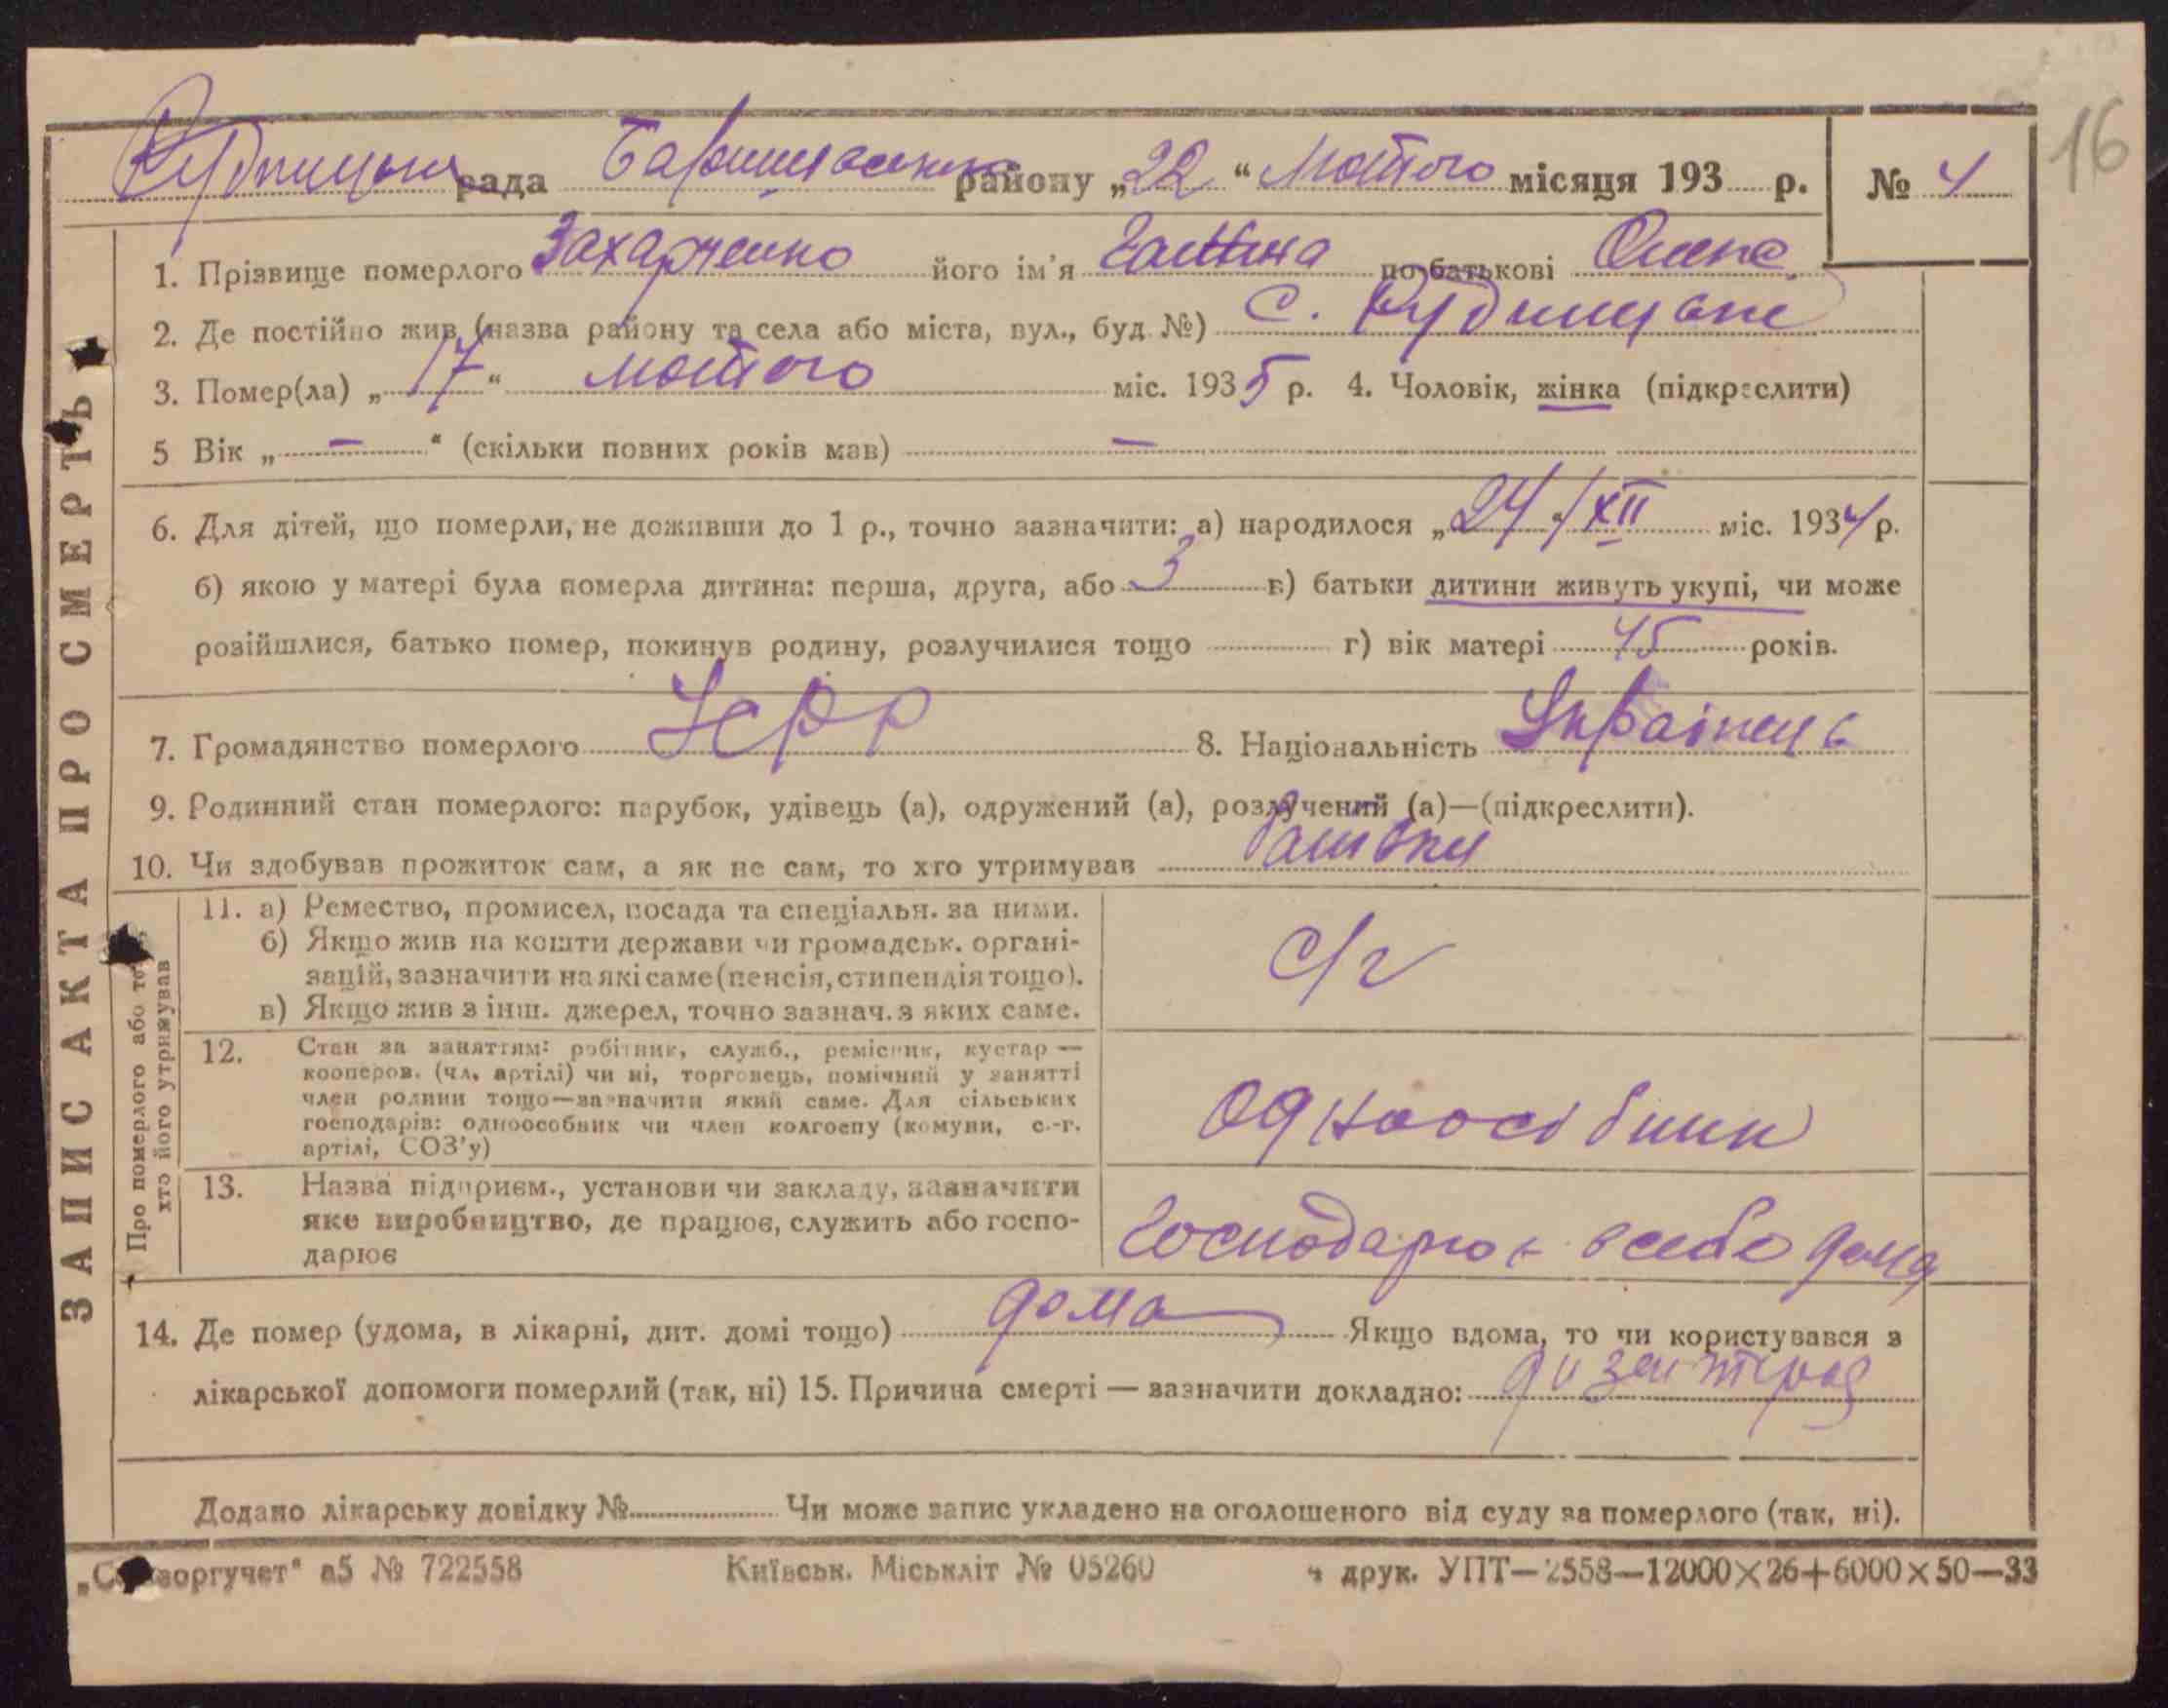 16
рада Баришівського району „22“ Лютого місяця 193 р. № 4
1. Прізвище померлого Захарченко його ім'я Галина по батькові
2. Де постійно жив (назва району та села або міста, вул., буд. №) с.
3. Помер(ла) „17“ лютого міс. 1935 р. 4. Чоловік, жінка (підкреслити)
5 Вік „ – “ (скільки повних років мав) –
6. Для дітей, що померли, не доживши до 1 р., точно зазначити: а) народилося „24“/XII міс. 1934 р.
б) якою у матері була померла дитина: перша, друга, або 3 в) батьки дитини живуть укупі, чи може
розійшлися, батько помер, покинув родину, розлучилися тощо г) вік матері 45 років.
7. Громадянство померлого УСРР 8. Національність Українець
9. Родинний стан померлого: парубок, удівець (а), одружений (а), розлучений (а)—(підкреслити).
10. Чи здобував прожиток сам, а як не сам, то хто утримував батьки
ЗАПИС АКТА ПРО СМЕРТЬ
Про померлого або
хто його утримував
11. а) Ремество, промисел, посада та спеціальн. за ними.
б) Якщо жив на кошти держави чи громадськ. органі-
зацій, зазначити на які саме (пенсія, стипендія тощо).
в) Якщо жив з інш. джерел, точно зазнач. з яких саме.
с/г
12. Стан за заняттям: робітник, служб., ремісник, кустар —
кооперов. (чл. артілі) чи ні, торговець, помічний у занятті
член родини тощо—зазначити який саме. Для сільських
господарів: одноособник чи член колгоспу (комуни, с.-г.
артілі, СОЗ'у)
одноосібник
13. Назва підприєм., установи чи закладу, зазначити
яке виробництво, де працює, служить або госпо-
дарює
господарює в себе дома
14. Де помер (удома, в лікарні, дит. домі тощо) дома Якщо вдома, то чи користувався з
лікарської допомоги померлий (так, ні) 15. Причина смерті — зазначити докладно: дизентерія
Додано лікарську довідку № Чи може запис укладено на оголошеного від суду за померлого (так, ні).
„Союзоргучет“ а5 № 722558 Київськ. Міськліт № 05260 4 друк. УПТ—2558—12000×26+6000×50—33